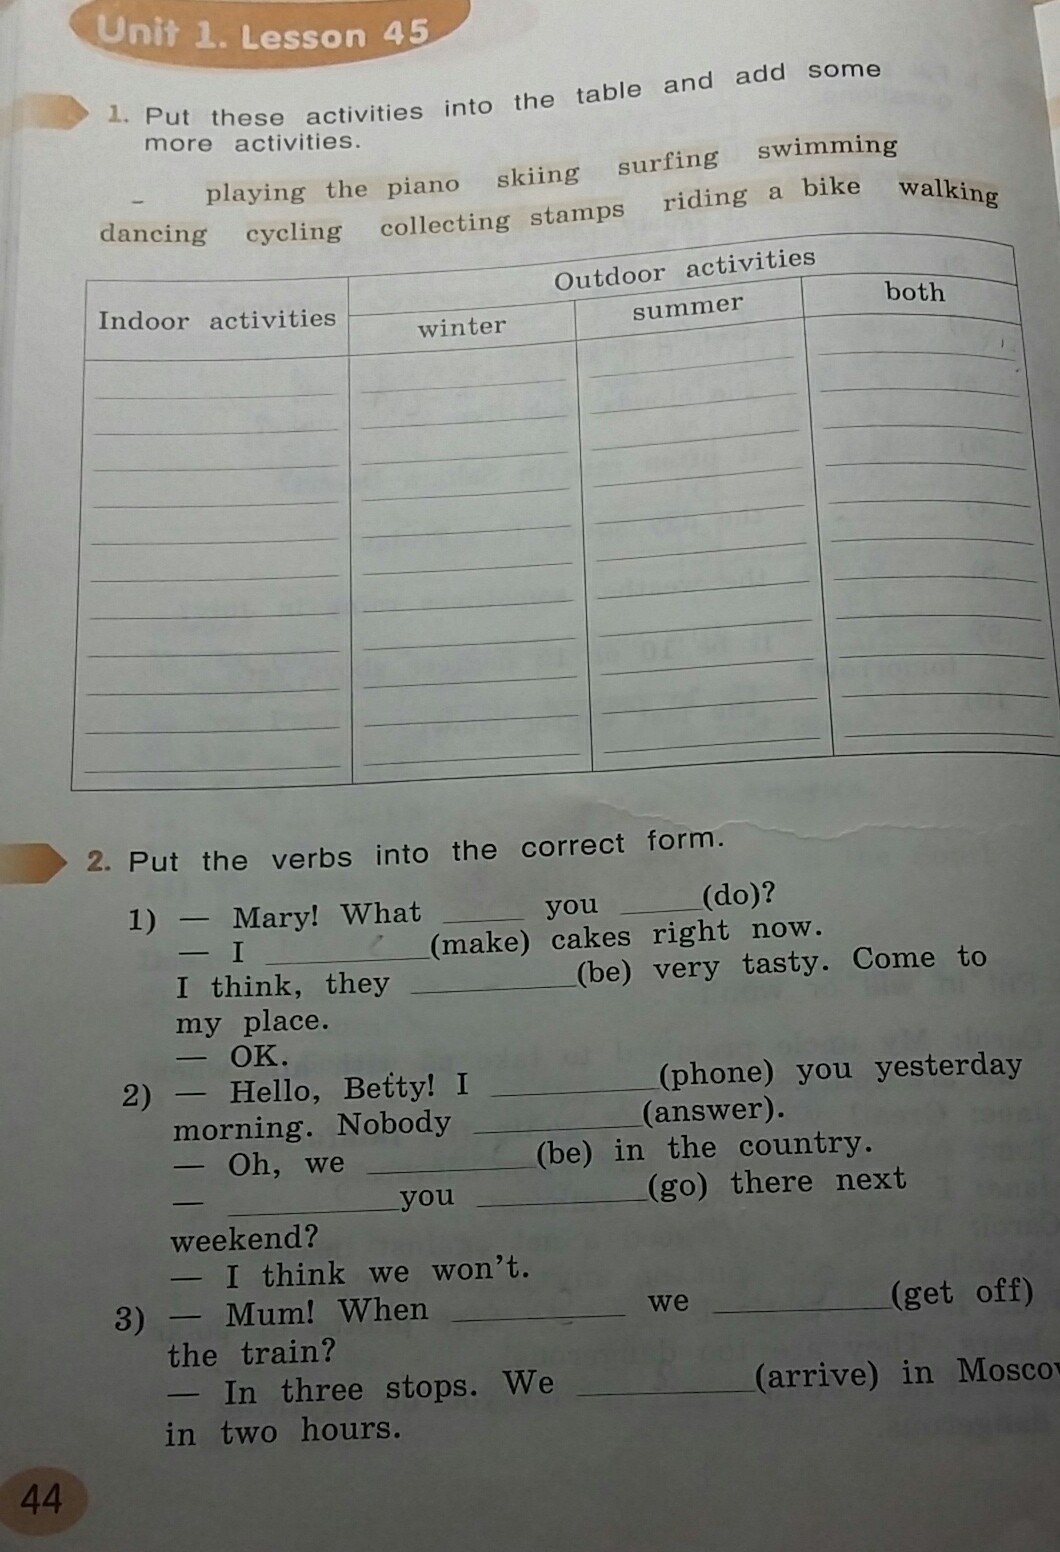 Unit 1. Lesson 45
1. Put these activities into the table and add some
more activities.
playing the piano skiing surfing swimming
dancing cycling collecting stamps riding a bike walking
Indoor activities
Outdoor activities
winter
summer
both
2. Put the verbs into the correct form.
1) — Mary! What _____ you _____ (do)?
— I __________ (make) cakes right now.
I think, they __________ (be) very tasty. Come to
my place.
— OK.
2) — Hello, Betty! I __________ (phone) you yesterday
morning. Nobody __________ (answer).
— Oh, we __________ (be) in the country.
— __________ you __________ (go) there next
weekend?
— I think we won't.
3) — Mum! When __________ we __________ (get off)
the train?
— In three stops. We __________ (arrive) in Mosco
in two hours.
44